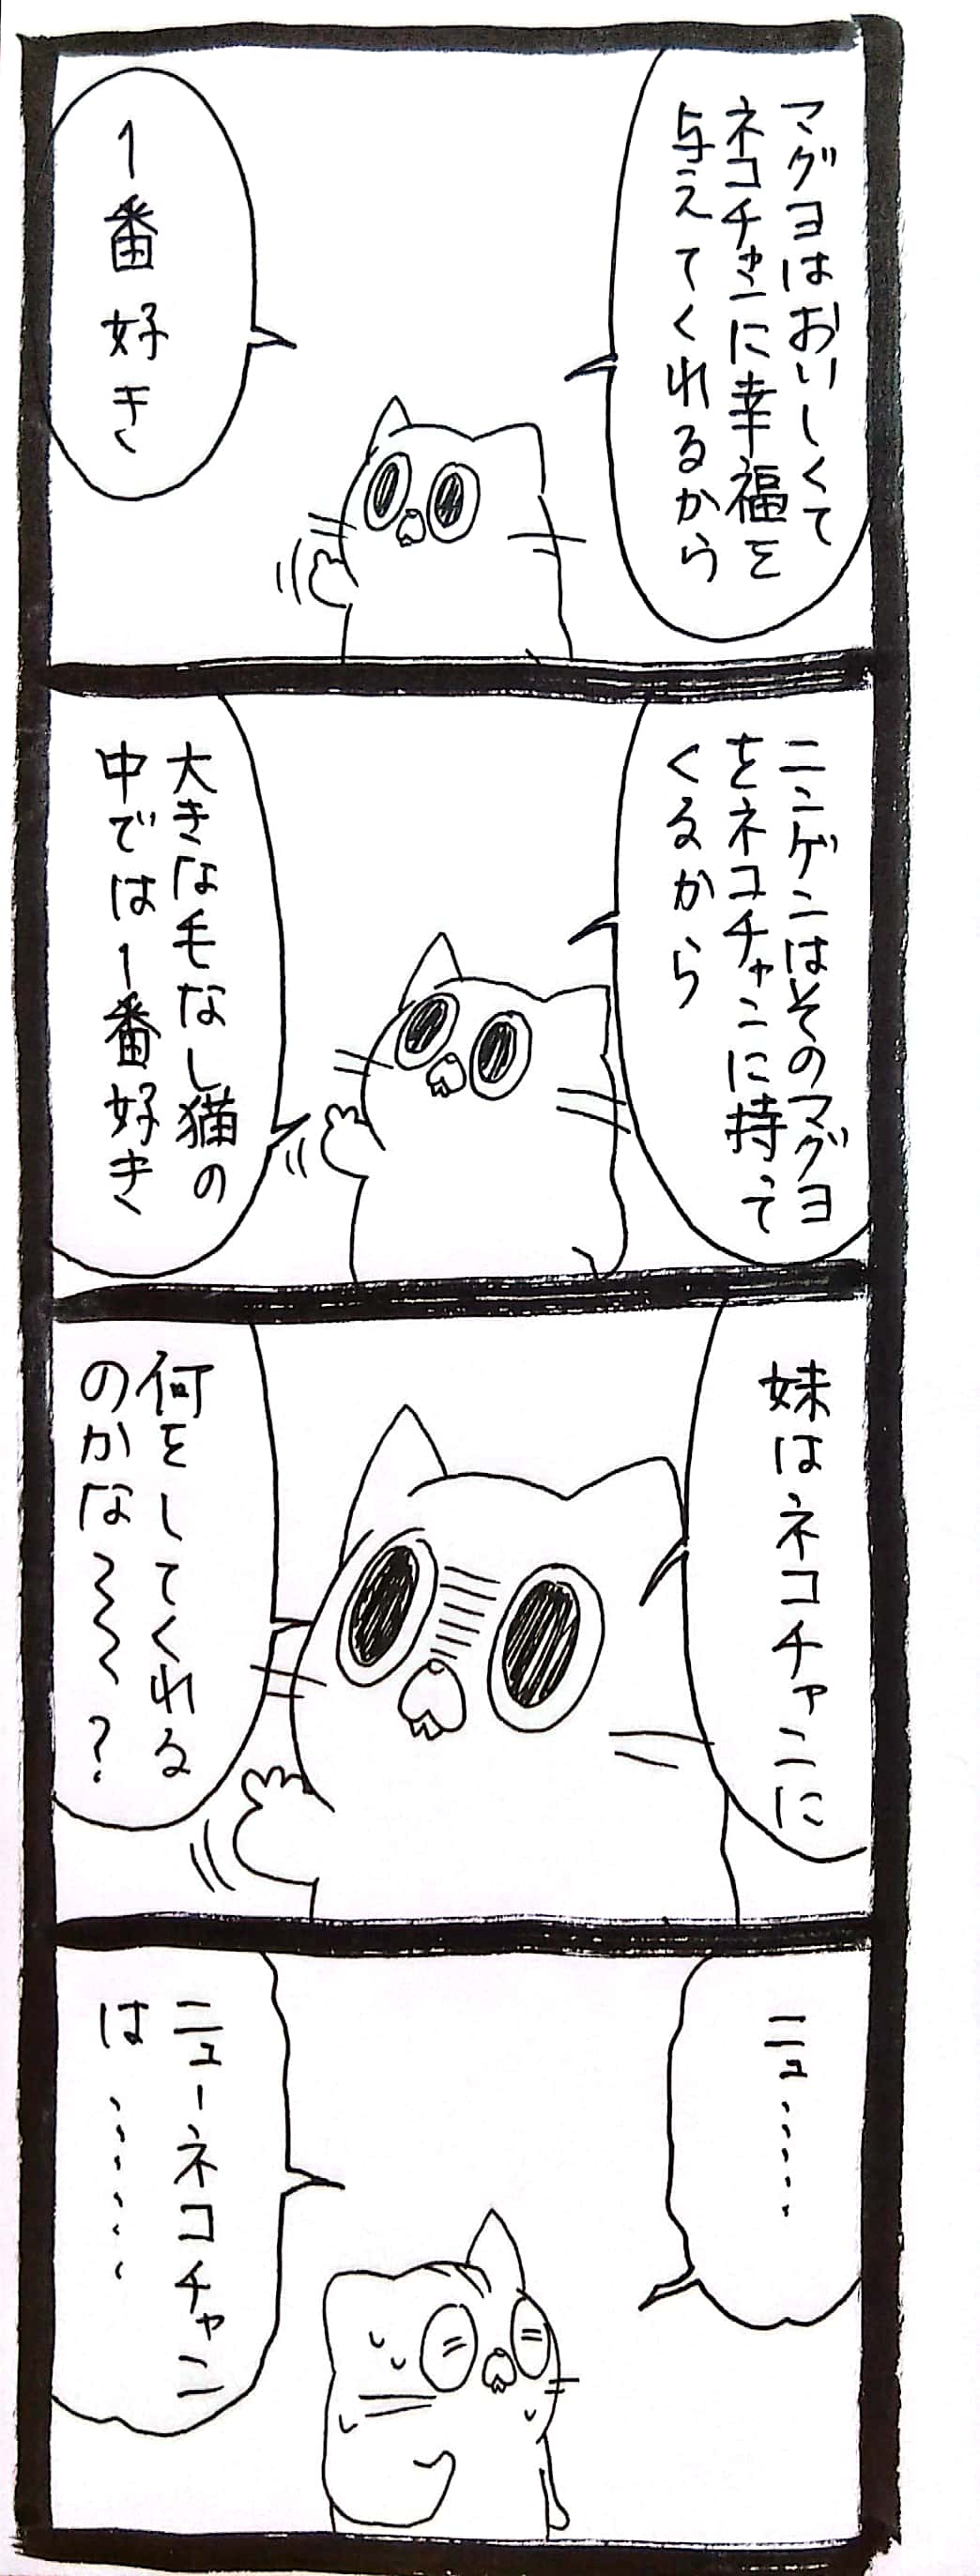 マグヨはおいしくて
ネコチャンに幸福を
与えてくれるから
1番好き
ニンゲンはそのマグヨ
をネコチャンに持って
くるから
大きな毛なし猫の
中では1番好き
妹はネコチャンに
何をしてくれる
のかな〜〜?
ニュ……
ニューネコチャン
は……